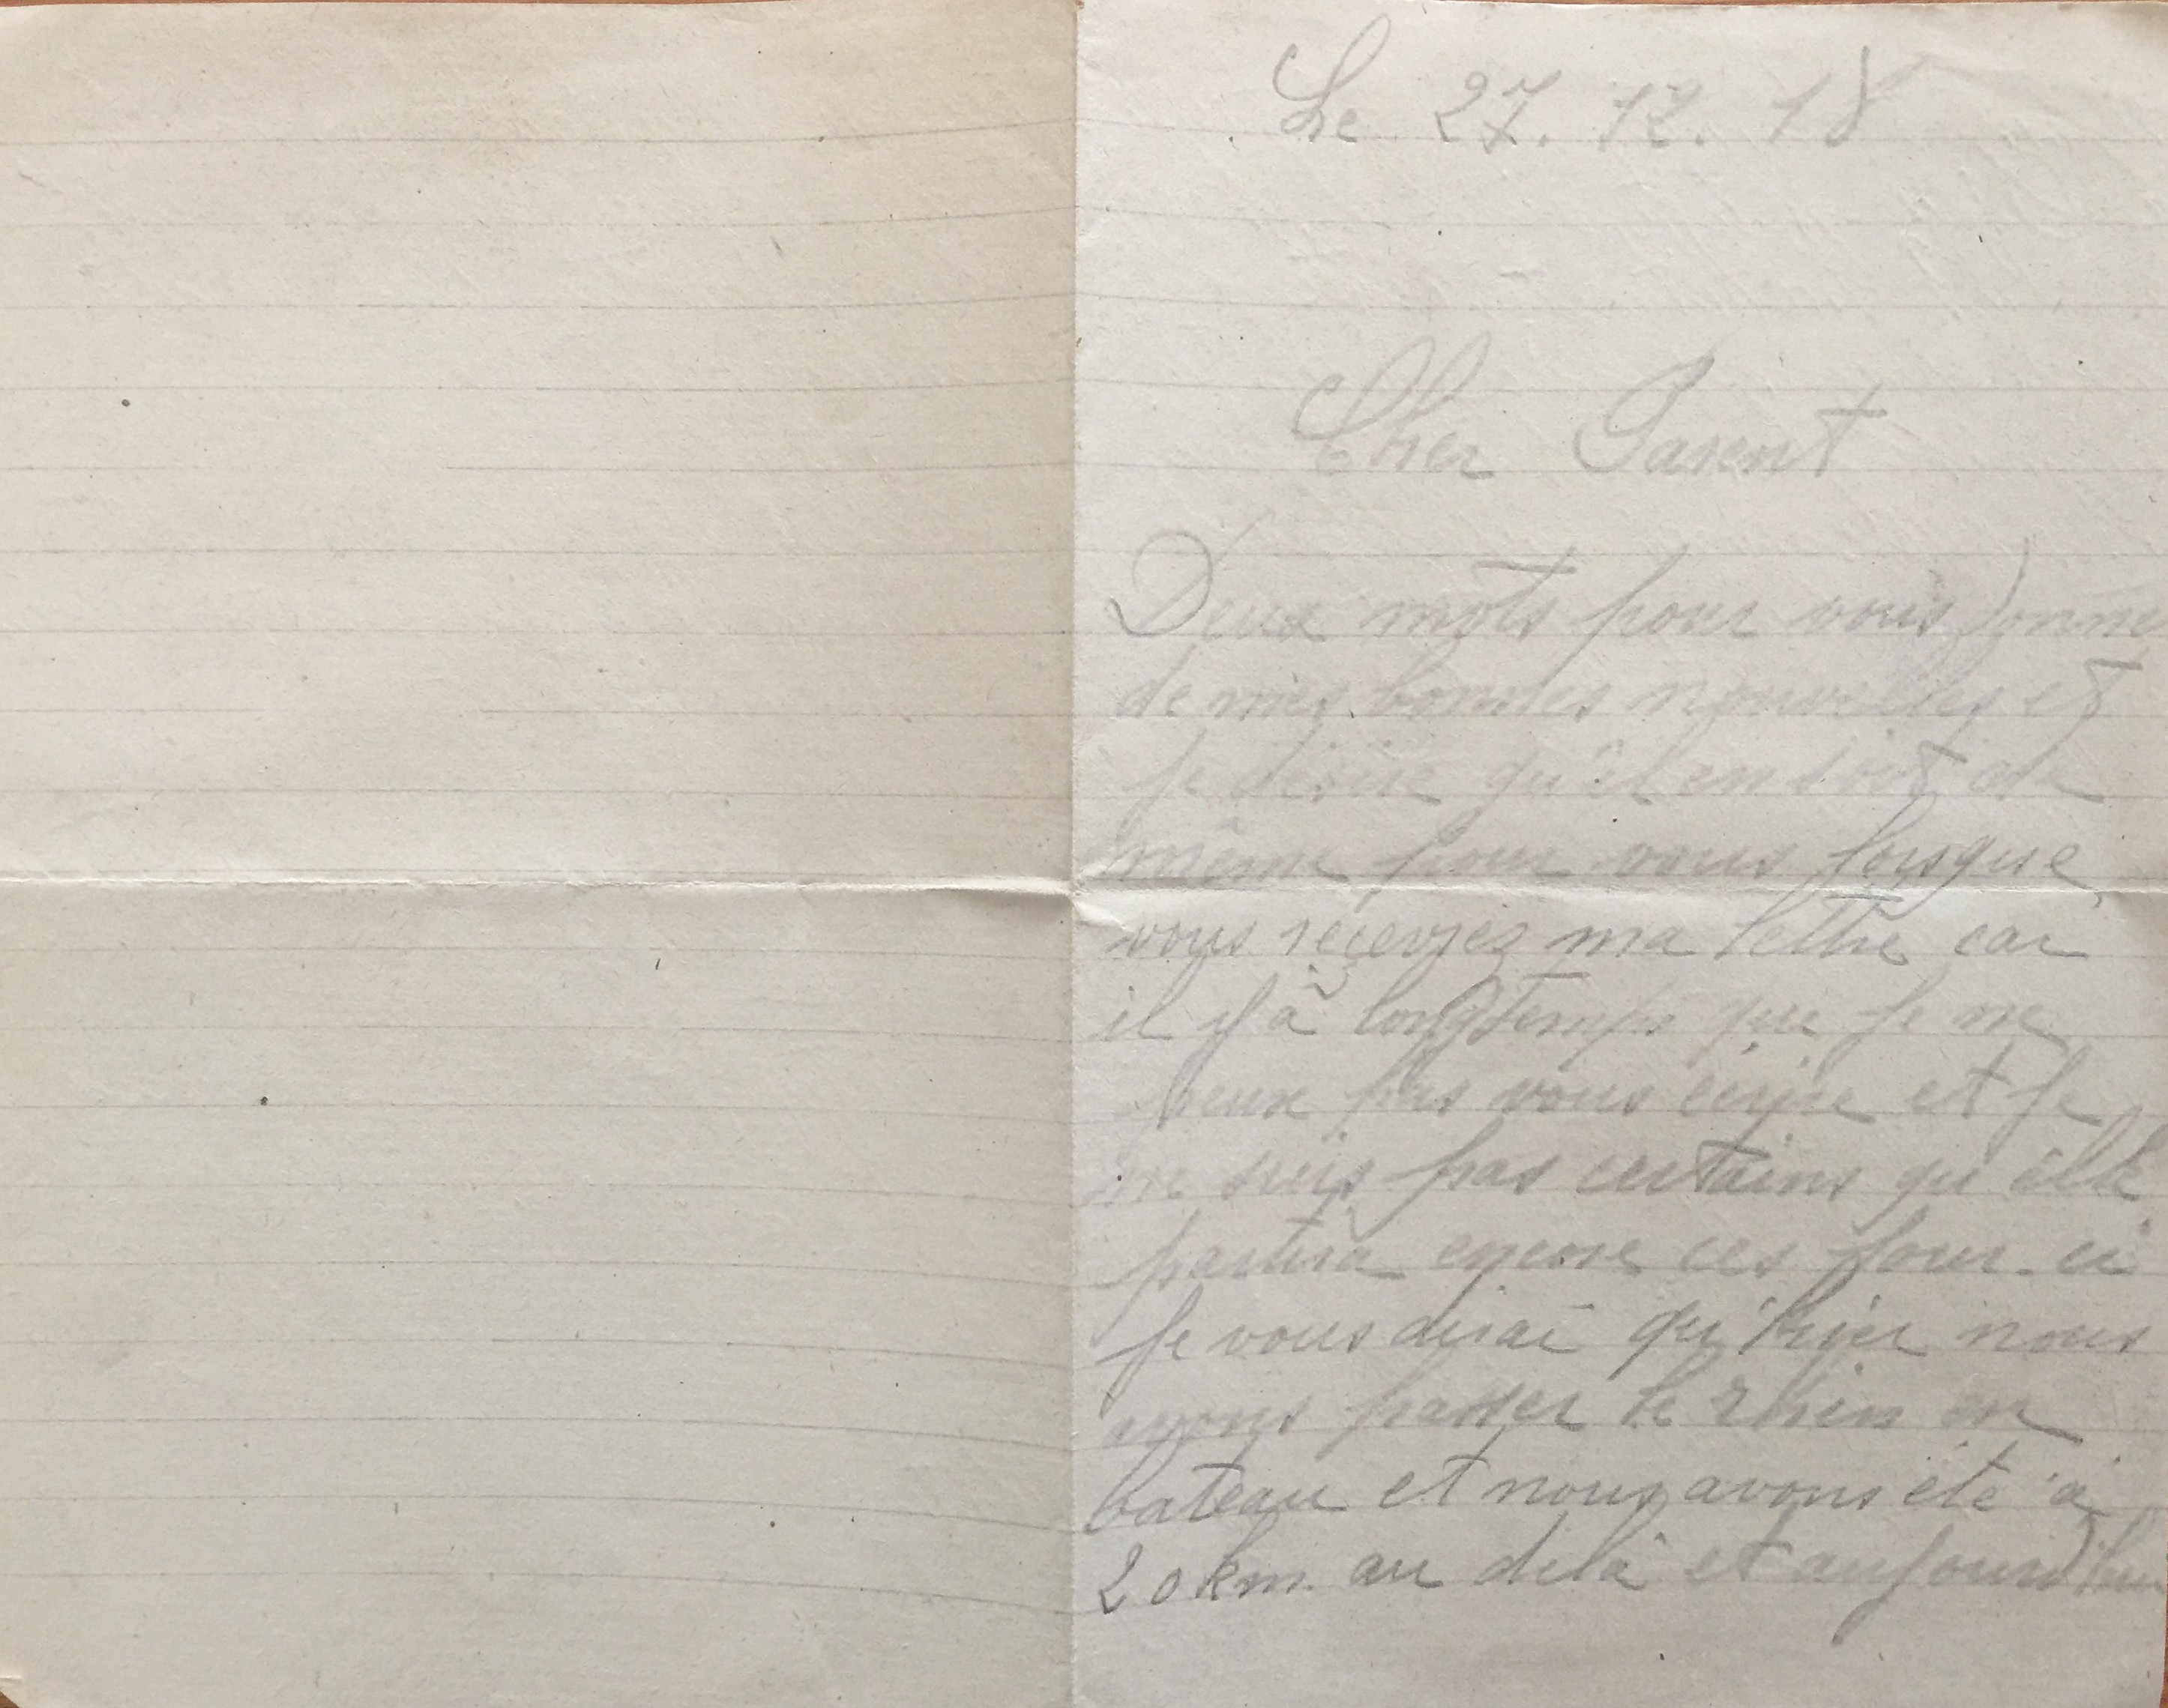 Le 27.12.18
Cher Parent
Deux mots pour vous donner
de mes bonnes nouvelles et
je désire qu'il en soit de
même pour vous lorsque
vous recevrez ma lettre car
il y a longtemps que je ne
peux pas vous écrire et je
ne suis pas certains qu'elle
partira encore ces jour-ci
Je vous dirai qu'hier nous
avons passer le Rhin en
bateau et nous avons été à
20 km. au delà et aujourd'hui